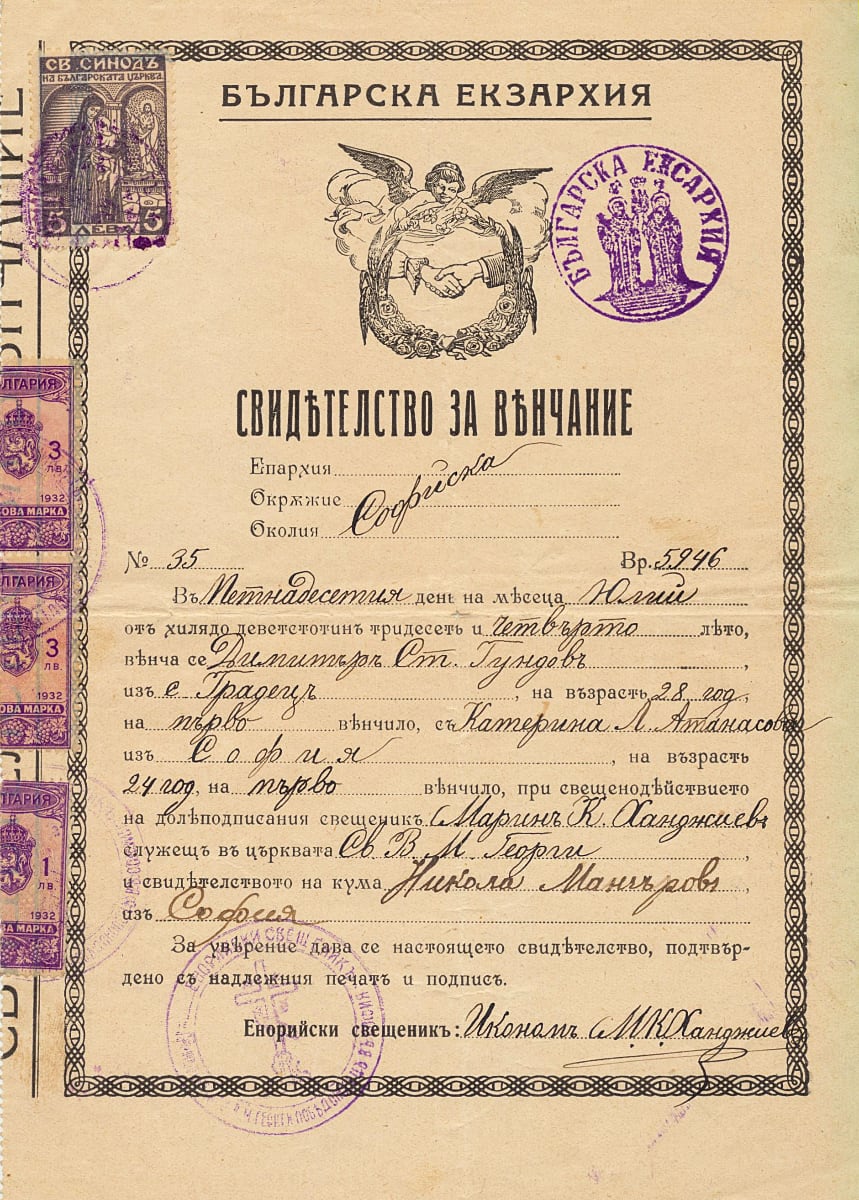 СВ. СИНОДЪ
НА БЪЛГАРСКАТА ЦЪРКВА
5 5
ЛЕВА
БЪЛГАРСКА ЕКЗАРХИЯ
БЪЛГАРСКА ЕКСАРХИЯ
СВИДѢТЕЛСТВО ЗА ВѢНЧАНИЕ
Епархия
Окрѫжие Софийска
Околия
№ 35 Вр. 5946
Въ Петнадесетия день на мѣсеца Юлий
отъ хилядо деветстотинъ тридесеть и четвърто лѣто,
вѣнча се Димитъръ Ст. Гундовъ,
изъ с. Градецъ, на възрасть 28 год,
на първо вѣнчило, съ Катерина Л. Атанасова
изъ София, на възрасть
24 год, на първо вѣнчило, при свещенодѣйствието
на долѣподписания свещеникъ Маринъ К. Ханджиевъ
служещ въ църквата Св В М Георги,
и свидѣтелството на кума Никола Манчъровъ,
изъ София
За увѣрение дава се настоящето свидѣтелство, подтвър-
дено съ надлежния печатъ и подпись.
Енорийски свещеникъ: Икономъ М.К.Ханджиевъ
ЛГАРИЯ
3
ЛВ.
1932
ОВА МАРКА
ЛГАРИЯ
3
ЛВ.
1932
ОВА МАРКА
ЛГАРИЯ
1
ЛВ.
1932
ВА МАРКА
ЕНОРИЙСКИ СВЕЩЕНИКЪ